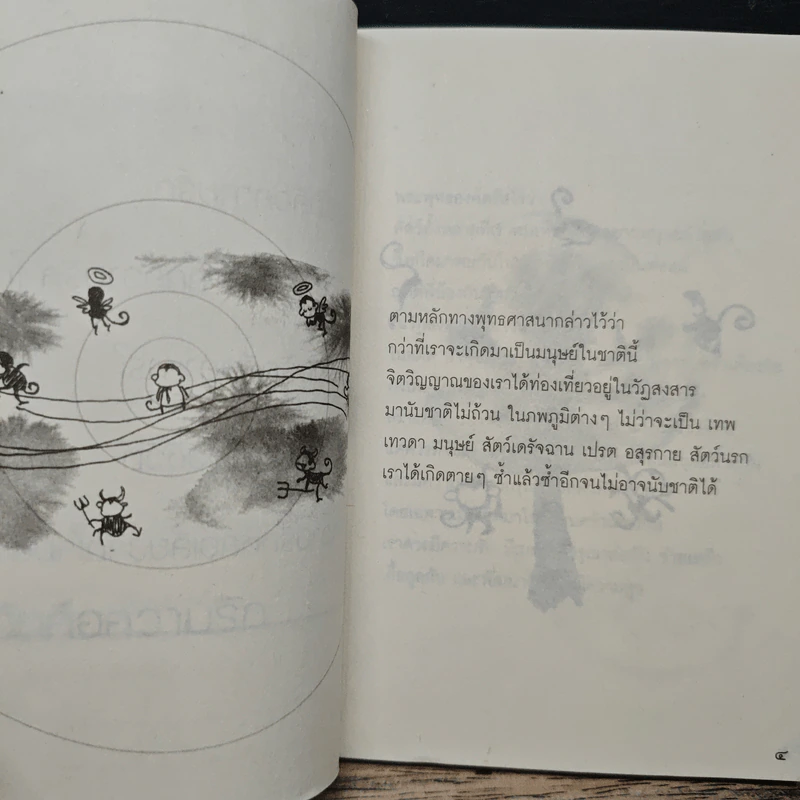 ตามหลักทางพุทธศาสนากล่าวไว้ว่า
กว่าที่เราจะเกิดมาเป็นมนุษย์ในชาตินี้
จิตวิญญาณของเราได้ท่องเที่ยวอยู่ในวัฏสงสาร
มานับชาติไม่ถ้วน ในภพภูมิต่างๆ ไม่ว่าจะเป็น เทพ
เทวดา มนุษย์ สัตว์เดรัจฉาน เปรต อสุรกาย สัตว์นรก
เราได้เกิดตายๆ ซ้ำแล้วซ้ำอีกจนไม่อาจนับชาติได้
๔